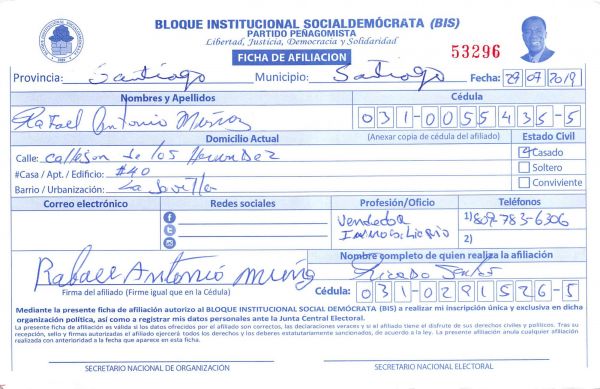 BLOQUE INSTITUCIONAL SOCIALDEMÓCRATA (BIS)
PARTIDO PEÑAGOMISTA
Libertad, Justicia, Democracia y Solidaridad
FICHA DE AFILIACION
53296
Provincia: Santiago Municipio: Santiago Fecha: 29 07 2019
Nombres y Apellidos Cédula
Rafael Antonio Muñoz 031-0055435-5
Domicilio Actual (Anexar copia de cédula del afiliado) Estado Civil
Calle: callejon de los Hernandez Casado
#Casa / Apt. / Edificio: #40 Soltero
Barrio / Urbanización: La Conviviente
Correo electrónico Redes sociales Profesión/Oficio Teléfonos
Vendedor 1) 809-783-6306
Inmobiliario 2)
Nombre completo de quien realiza la afiliación
Rafael Antonio Muñoz Ricardo Santos
Firma del afiliado (Firme igual que en la Cédula) Cédula: 031-0291526-5
Mediante la presente ficha de afiliación autorizo al BLOQUE INSTITUCIONAL SOCIAL DEMÓCRATA (BIS) a realizar mi inscripción única y exclusiva en dicha
organización política, así como a registrar mis datos personales ante la Junta Central Electoral.
La presente ficha de afiliación es válida si los datos ofrecidos por el afiliado son correctos, las declaraciones veraces y si el afiliado tiene el disfrute de sus derechos civiles y políticos. Tras su
recepción, sello y firmas autorizadas el afiliado ejercerá todos los derechos y los deberes estatutariamente sancionados, de acuerdo a la ley. La presente afiliación anula cualquier afiliación
realizada con anterioridad a la fecha que aparece en esta ficha.
SECRETARIO NACIONAL DE ORGANIZACIÓN SECRETARIO NACIONAL ELECTORAL